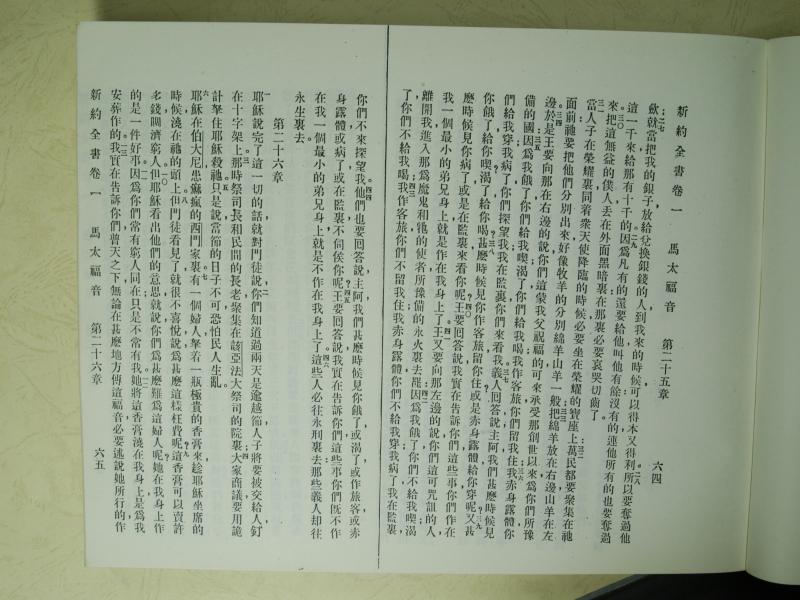 新約全書卷一 馬太福音 第二十五章 六四
歛就當把我的銀子放給兌換銀錢的人到我來的時候可以得本又得利所以要奪過他
這一千來給那有十千的因爲凡有的還要給他叫他有餘沒有的連他所有的也要奪過
來把這無益的僕人丟在外面黑暗裏在那裏必要哀哭切齒了
當人子在榮耀裏同着衆天使降臨的時候必要坐在榮耀的寶座上萬民都要聚集在祂
面前祂要把他們分別出來好像牧羊的分別綿羊山羊一般把綿羊放在右邊山羊在左
邊於是王要向那在右邊的說你們這蒙我父祝福的可來承受那創世以來爲你們所豫
備的國因爲我餓了你們給我喫渴了你們給我喝我作客旅你們留我住我赤身露體你
們給我穿我病了你們探望我我在監裏你們來看我義人回答說主阿我們甚麽時候見
你餓了給你喫渴了給你喝甚麽時候見你作客旅留你住或是赤身露體給你穿呢又甚
麽時候見你病了或是在監裏來看你呢王要回答說我實在告訴你們這些事你們作在
我一個最小的弟兄身上就是作在我身上了王又要向那左邊的說你們這可咒詛的人
離開我進入那爲魔鬼和牠的使者所豫備的永火裏去罷因爲我餓了你們不給我喫渴
了你們不給我喝我作客旅你們不留我住我赤身露體你們不給我穿我病了我在監裏
你們不來探望我他們也要回答說主阿我們甚麽時候見你餓了或渴了或作旅客或赤
身露體或病了或在監裏不伺侯你呢王要回答說我實在告訴你們這些事你們旣不作
在我一個最小的弟兄身上就是不作在我身上了這些人必往永刑裏去那些義人却往
永生裏去
第二十六章
耶穌說完了這一切的話就對門徒說你們知道過兩天是逾越節人子將要被交給人釘
在十字架上那時祭司長和民間的長老聚集在該亞法大祭司的院裏大家商議要用詭
計拏住耶穌殺祂只是說當節的日子不可恐怕民人生亂
耶穌在伯大尼患痲瘋的西門家裏有一個婦人拏着一瓶極貴的香膏來趁耶穌坐席的
時候澆在祂的頭上但門徒看見了就很不喜悅說爲甚麽這樣枉費呢這香膏可以賣許
多錢賙濟窮人但耶穌看出他們的意思就說你們爲甚麽難爲這婦人呢她在我身上作
的是一件好事因爲你們常有窮人同在只是不常有我她將這香膏澆在我身上是爲我
安葬作的我實在告訴你們普天之下無論在甚麽地方傳這福音必要述說她所行的作
新約全書卷一 馬太福音 第二十六章 六五